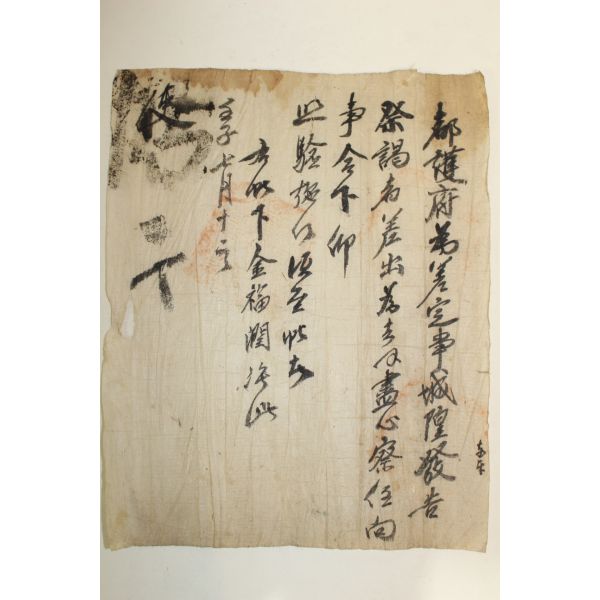 都護府爲差定事城隍發告
祭謁者差出爲去乎盡心察任向
事合下仰
照驗施行須至帖者
右帖下金福潤准此
壬子七月十
使